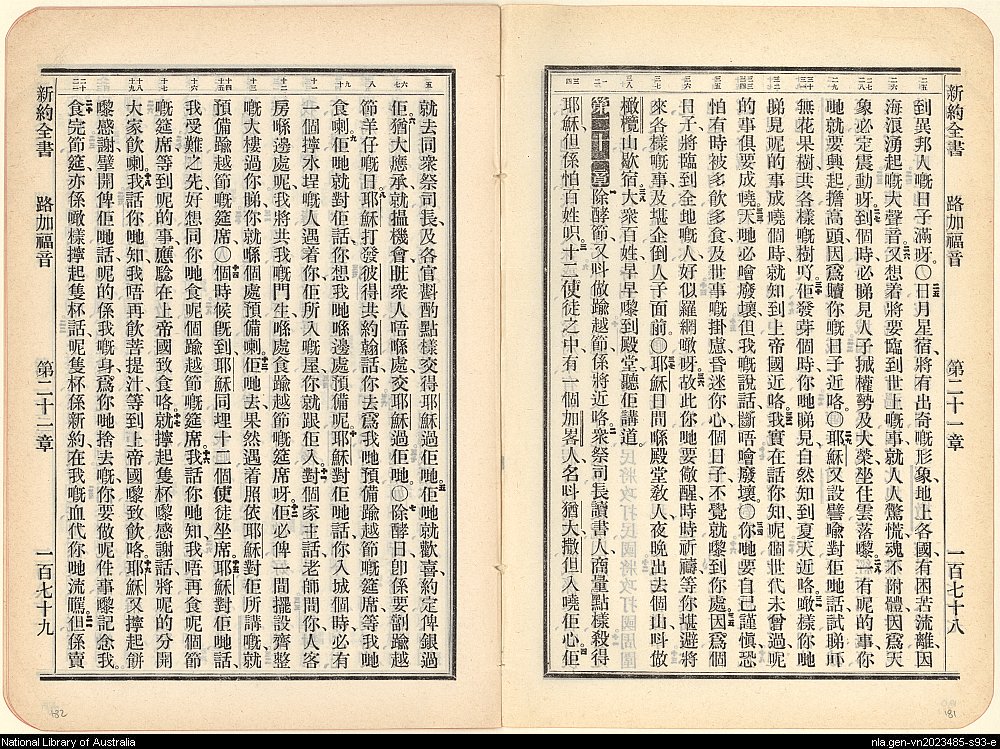 新約全書 路加福音 第二十一章 一百七十八
到異邦人嘅日子滿呀〇日月星宿將有出奇嘅形象地上各國有困苦流離因
海浪湧起嘅大聲音又想着將要臨到世上嘅事就人人驚慌魂不附體因爲天
象必定震動呀到個時必睇見人子權勢及大榮坐住雲落嚟一有呢的事你
哋就要興起擔高頭因爲贖你嘅日子近咯〇耶穌又設譬喻對佢哋話試睇吓
無花果樹共各樣嘅樹吖佢發芽個時你哋睇見自然知到夏天近咯噉樣你哋
睇見呢的事成嘵個時就知到上帝國近咯我實在話你知呢個世代未曾過呢
的事俱要成嘵天地必噲廢壞但我嘅說話斷唔噲廢壞〇你哋要自己謹愼恐
怕有時被多飲多食及世事嘅掛慮昏迷你心個日子不覺就嚟到你處因爲個
日子將臨到全地嘅人好似羅網噉呀故此你哋要儆醒時時祈禱等你堪避將
來各樣嘅事及堪企倒人子面前〇耶穌日間喺殿堂敎人夜晚出去個山呌做
橄欖山歇宿大衆百姓早早嚟到殿堂聽佢講道
第二十二章 除酵節又呌做踰越節係將近咯衆祭司長讀書人商量點樣殺得
耶穌但係怕百姓呮十二使徒之中有一個加畧人名呌猶大撒但入嘵佢心佢
就去同衆祭司長及各官斟酌點樣交得耶穌過佢哋佢哋就歡喜約定俾銀過
佢猶大應承就搵機會趁衆人唔喺處交耶穌過佢哋〇除酵日卽係要劏踰越
節羊仔嘅日耶穌打發彼得共約翰話你去爲我哋預備踰越節嘅筵席等我哋
食喇佢哋就對佢話你想我哋喺邊處預備呢耶穌對佢哋話你入城個時必有
一個擰水埕嘅人遇着你佢所入嘅屋你就跟佢入對個家主話老師問你人客
房喺邊處呢我將共我嘅門生喺處食踰越節嘅筵席呀佢必俾一間擺設齊整
嘅大樓過你睇你就喺個處預備喇佢哋去果然遇着照依耶穌對佢所講嘅就
預備踰越節嘅筵席〇個時候旣到耶穌同埋十二個使徒坐席耶穌對佢哋話
我受難之先好想同你哋食呢個踰越節嘅筵席我話你哋知我唔再食呢個節
嘅筵席等到呢的事應驗在上帝國致食咯就擰起隻杯嚟感謝話將呢的分開
大家飲喇我話你哋知我唔再飲菩提汁等到上帝國嚟致飲咯耶穌又擰起餅
嚟感謝擘開俾佢哋話呢的係我嘅身爲你哋捨去嘅你要做呢件事嚟記念我
食完節筵亦係噉樣擰起隻杯話呢隻杯係新約在我嘅血代你哋流嘅但係賣
新約全書 路加福音 第二十一章 一百七十九
182
181
National Library of Australia
nla.gen-vn2023485-s93-e